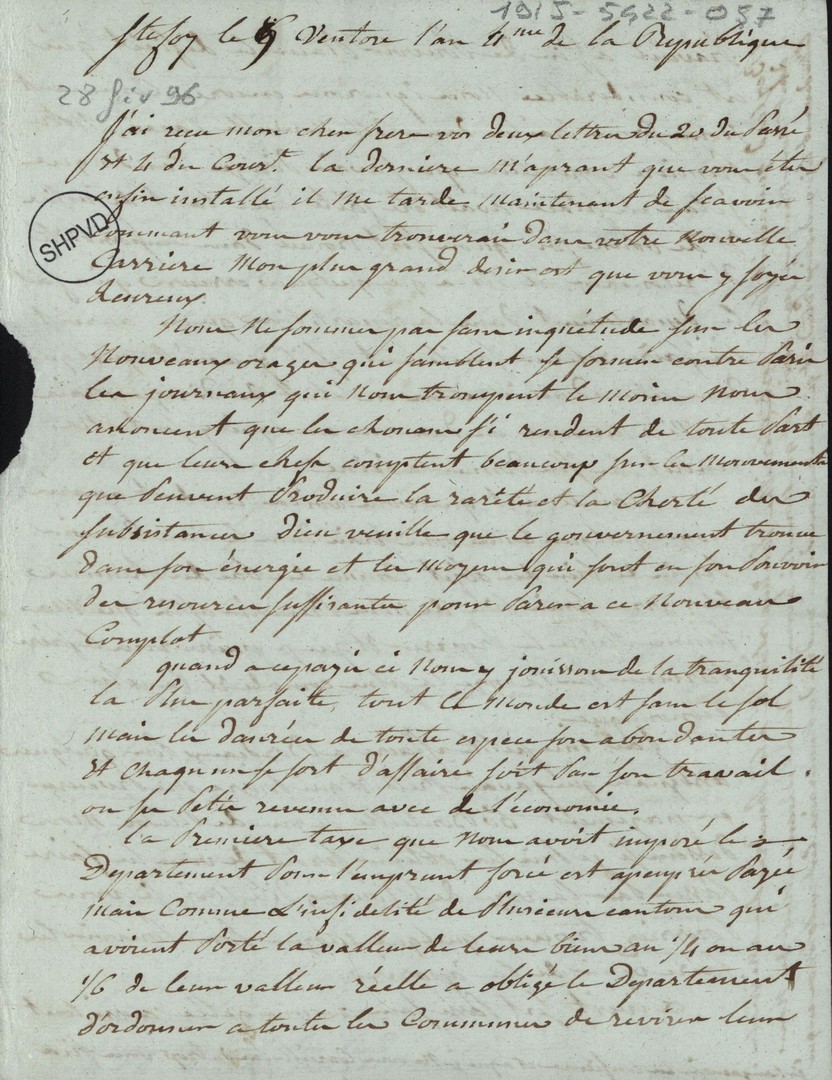 1915-5922-057
Ste foy le 9 Ventose l'an 4me de la Republique
28 fiv 96
J'ai recu mon cher frere vos deux lettres du 20 du Passé
et 4 du Court. la derniere m'aprant que vous étes
enfin installé il me tarde maintenant de scavoir
Comment vous vous trouverais dans votre Nouvelle
Carriere Mon plus grand desir est que vous y soyés
heureux
SHPVD
Nous Ne sommes pas sans inquiétude sur les
Nouveaux orages qui samblent se former contre Paris
les journaux qui Nous trompent le Moins Nous
anoncent que les chouans s'i rendent de toute Part
et que leurs chefs comptent beaucoup sur les Mouvements
que Peuvent Produire la rarété et la Cherté des
subsistances Dieu veuille que le gouvernement trouve
dans son énergie et les Moyens qui sont en son Pouvoir
des resources suffisantes pour Parer a ce Nouveau
Complot
quand a ce païs ci Nous y jouissons de la tranquilité
la Plus parfaite, tout le Monde est sans le sol
Mais les danrées de toute espece son abondantes
et chaqu'un se sort d'affaire soit Par son travail.
ou ses Petits revenus avec de l'économie.
la Premiere taxe que Nous avoit imposé le
Departement Pour l'emprunt forcé est apeuprés Payée
Mais Comme L'infidelité de Plusieurs cantons qui
avoient Porté la valleur de leurs biens au 1/4 ou au
1/6 de leur valleur réelle a obligé le Departement
d'ordonner a toutes les Communes de reviser leur